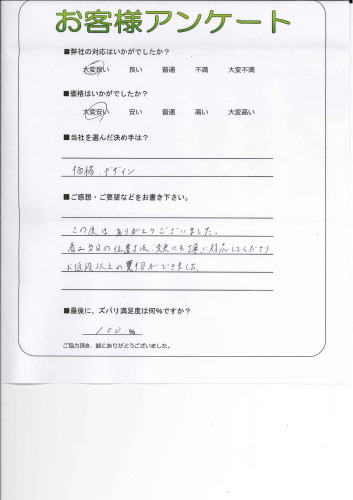 お客様アンケート
■弊社の対応はいかがでしたか？
大変良い 良い 普通 不満 大変不満
■価格はいかがでしたか？
大変安い 安い 普通 高い 大変高い
■当社を選んだ決め手は？
価格、デザイン
■ご感想・ご要望などをお書き下さい。
この度はありがとうございました。
着工当日の位置寸法、変更にも丁寧に対応してくださり
お値段以上の買物ができました。
■最後に、ズバリ満足度は何％ですか？
100 %
ご協力頂き、誠にありがとうございました。